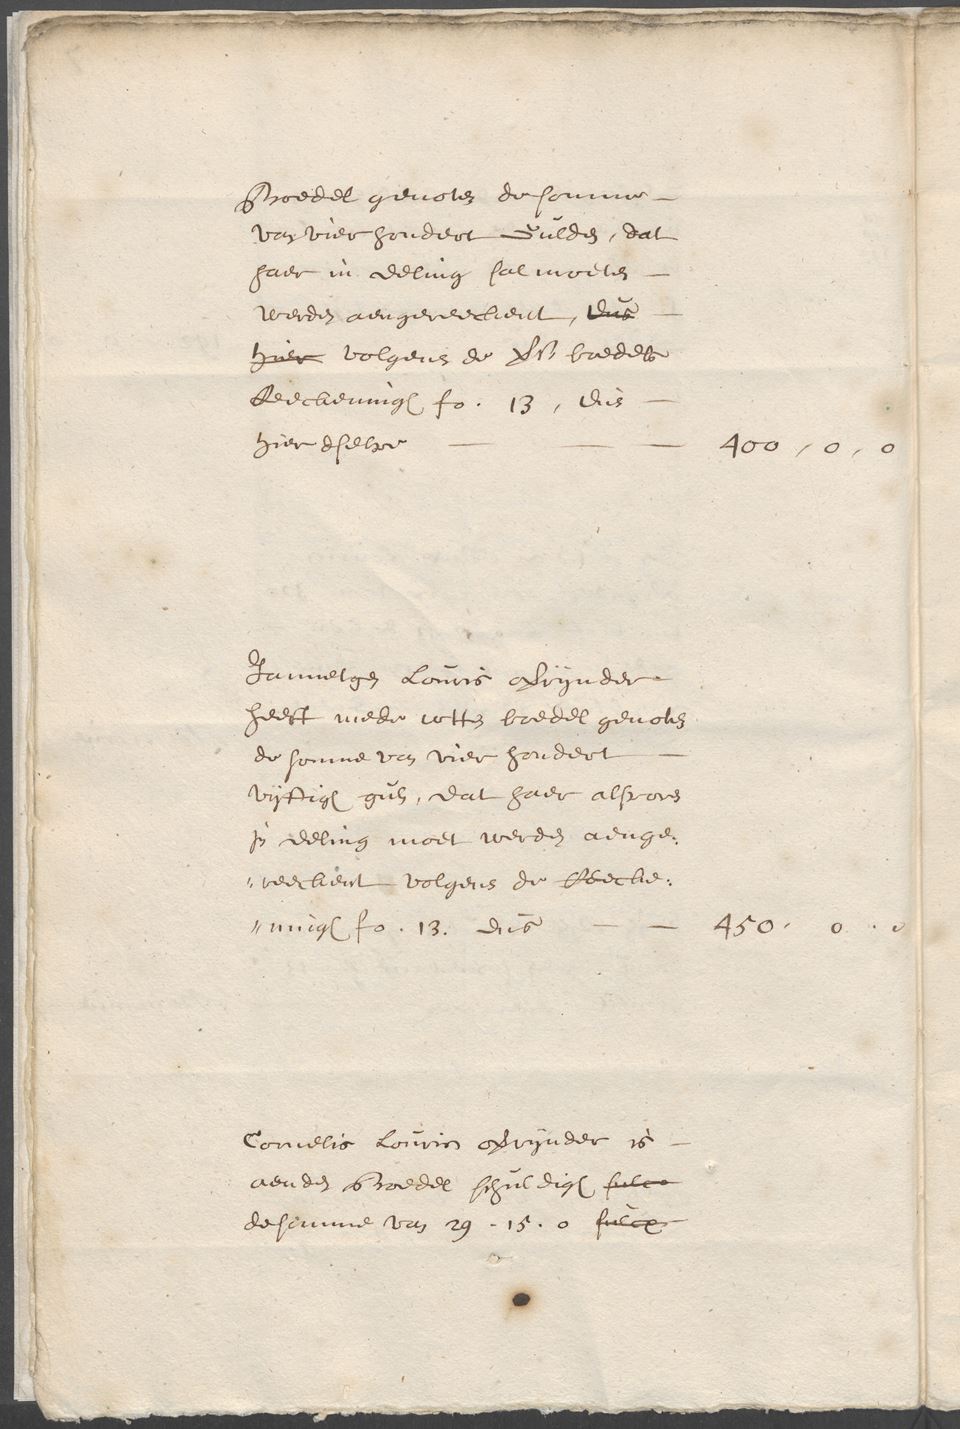 Boedel genoten de somme –
van vier hondert Gulden, dat
haer in deling sal moeten –
werden aengereeckent, dus –
hier volgens de boedels
Reeckeningh fo. 13, dus –
hier deselve – – – 400, 0, 0
Jannetgen Louris
heeft mede uytten boedel genoten
de somme van vier hondert –
vijftigh guls, dat haer alsvoren
in deling moet werden aenge:
"reeckent volgens de Reecke:
"ningh fo. 13. dus – – 450. 0. 0
Cornelis Louris is –
aenden Boedel schuldigh
de somme van 29 - 15. 0